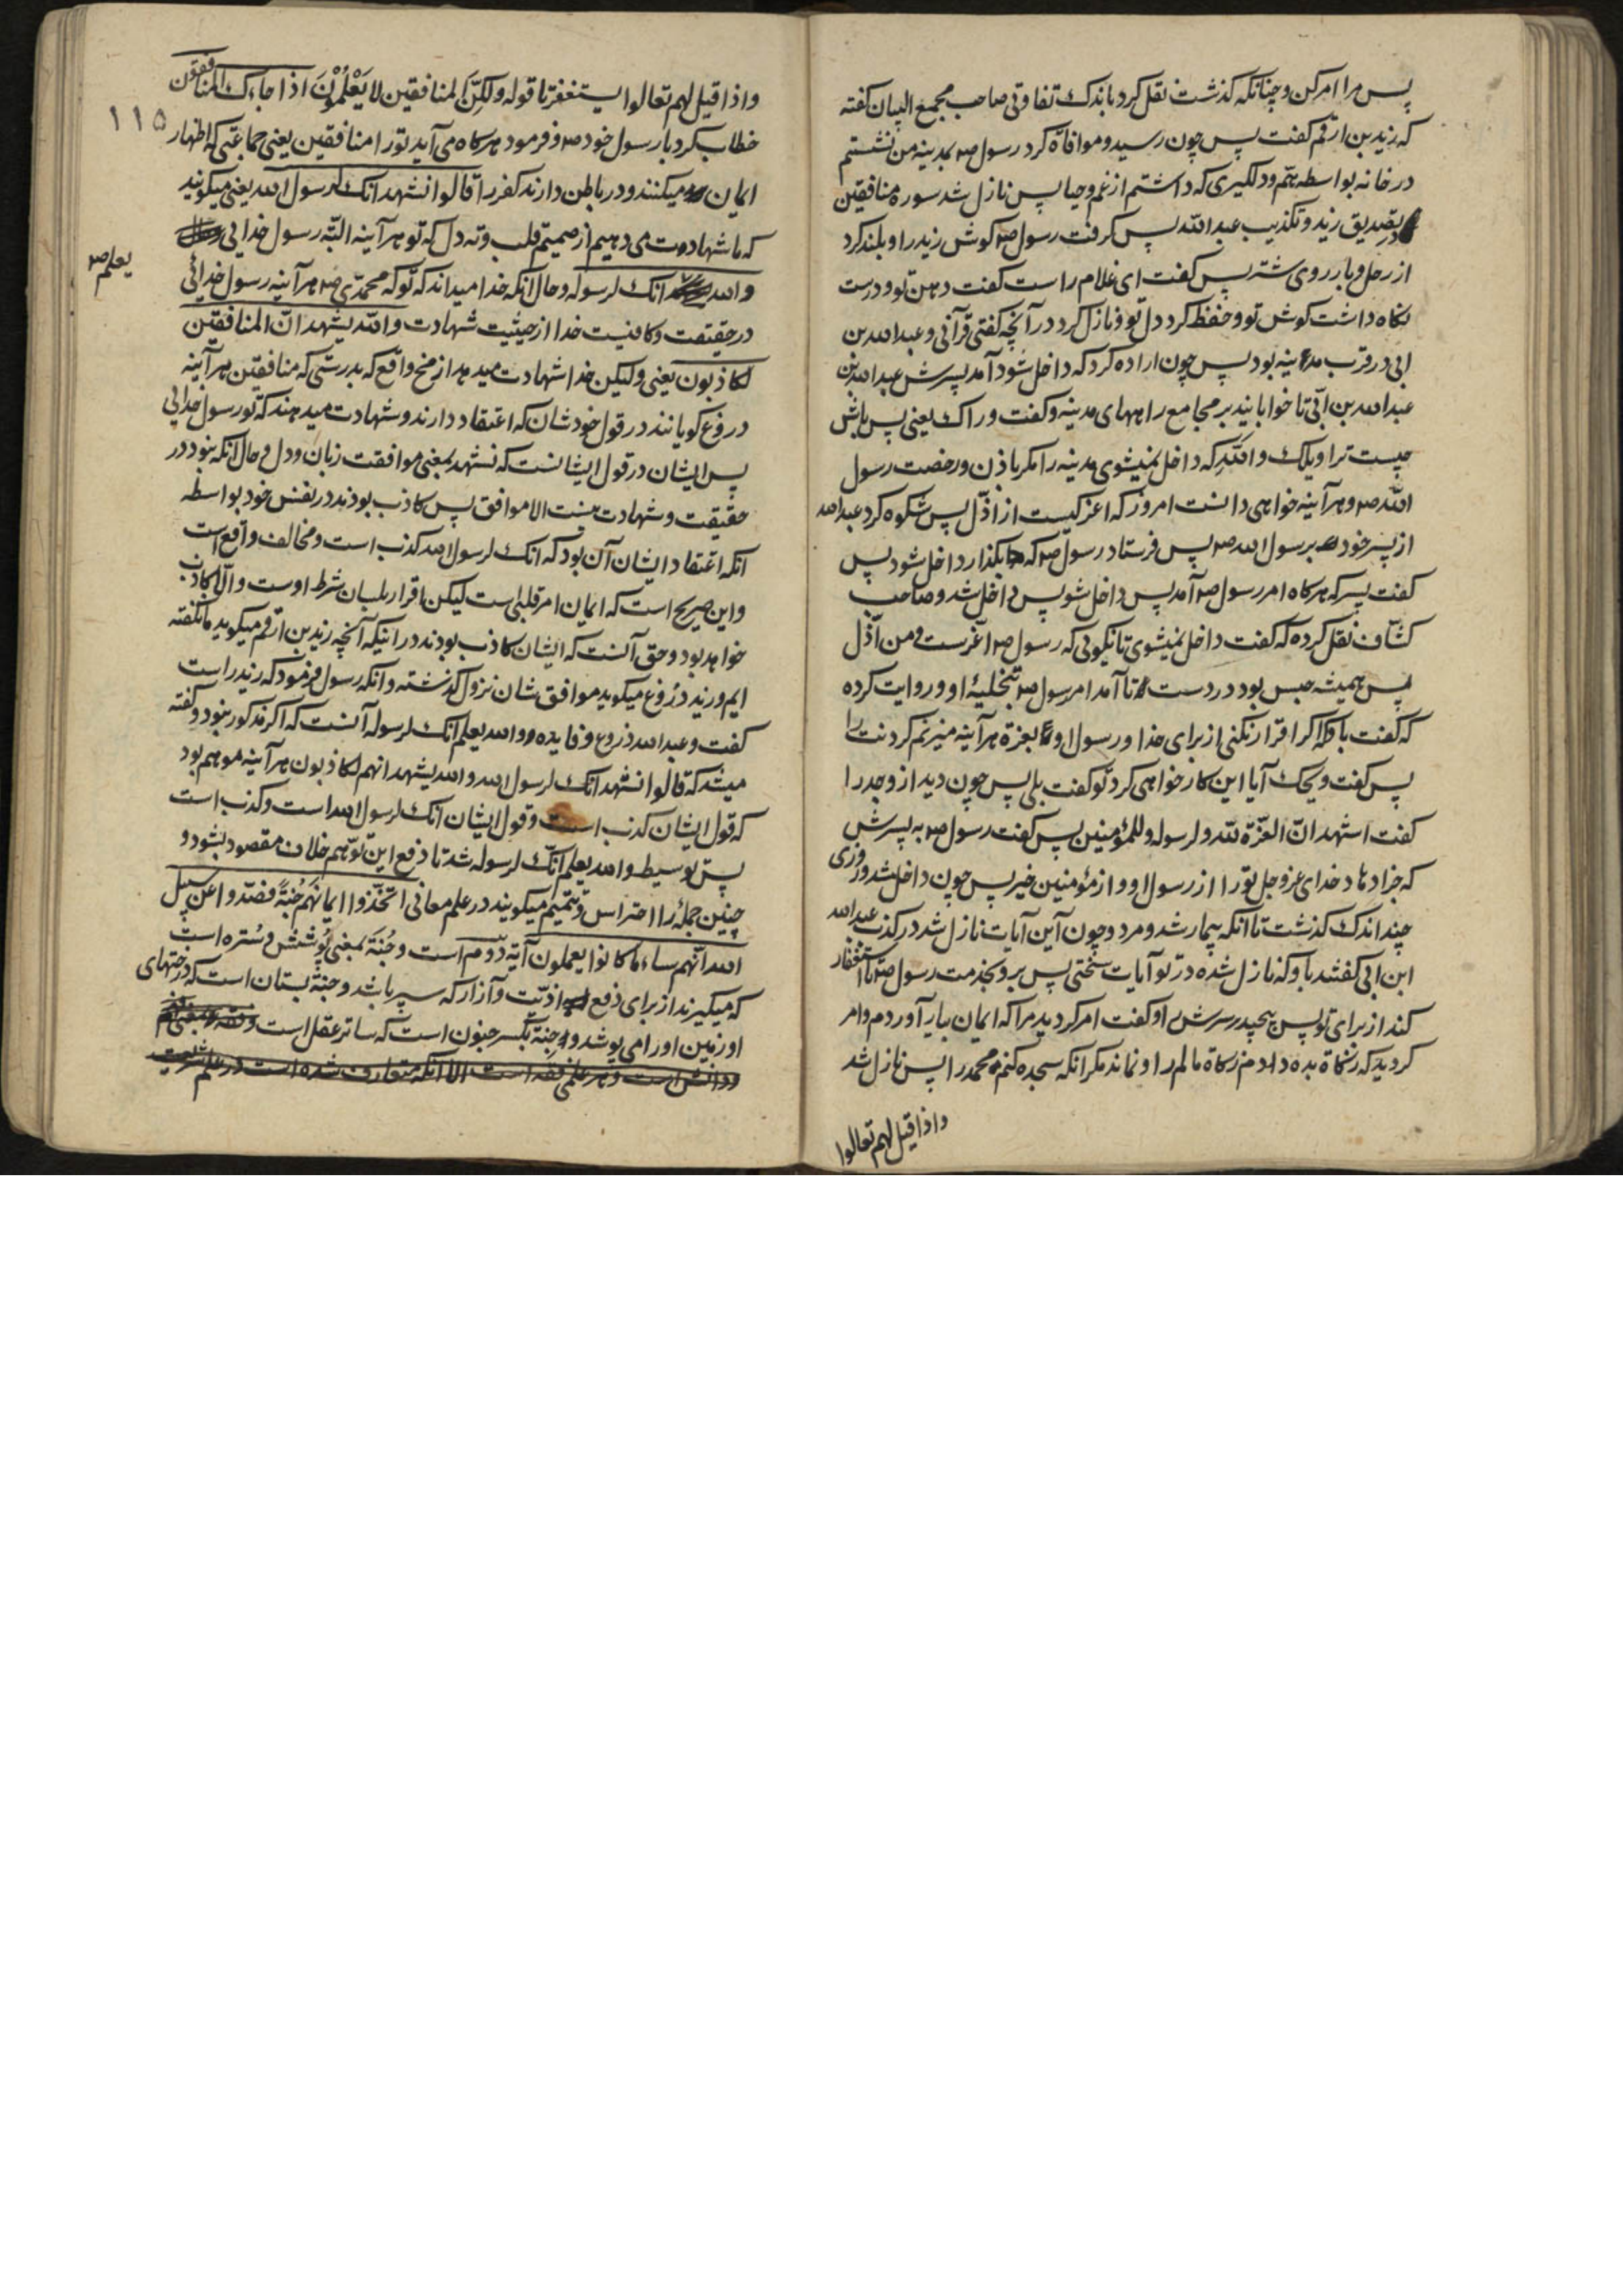 پس مرا امر کن و چنانکه کذشت نقل کرد باندک تفاوتی صاحب مجمع البیان کفته
که زید بن ارقم کفت پس چون رسید و موافاة کرد رسول ص بمدینه من نشستم
در خانه بواسطه همّ و دلکیری که داشتم از غم و حیا پس نازل شد سوره منافقین
بتصدیق زید و تکذیب عبد الله پس کرفت رسول ص کوش زید را و بلند کرد
از رحل و بار روی شتر پس کفت ای غلام راست کفت دهن تو و درست
نکاه داشت کوش تو و حفظ کرد دل تو و نازل کرد در آنچه کفتی قرآنی و عبد الله بن
ابی در قرب مدینه بود پس چون اراده کرد که داخل شود آمد پسرش عبد الله بن
عبد الله بن ابّی تا خوابانید بر مجامع راههای مدینه و کفت وراک یعنی پس باش
چیست ترا ویلک والله که داخل نمیشوی مدینه را مکر باذن و رخصت رسول
الله ص و هرآینه خواهی دانست امروز که اعز کیست از اذّل پس شکوه کرد عبد الله
از پسر خود بر رسول الله ص پس فرستاد رسول ص که بکذار داخل شود پس
کفت پسر که هرکاه امر رسول ص آمد پس داخل شو پس داخل شد و صاحب
کشّاف نقل کرده که کفت داخل نمیشوی تا نکوئی که رسول ص اعّزست و من اذّل
پس همیشه حبس بود در دست تا آمد امر رسول ص بتخلیۀ او و روایت کرده
که کفت با و که اکر اقرار نکنی از برای خدا و رسول او بعزة هرآینه میزنم کردنت را
پس کفت ویحک آیا این کار خواهی کرد تو کفت بلی پس چون دید ازو جد را
کفت اشهد انّ العزّة لله و لرسوله و للمؤمنین پس کفت رسول ص به پسرش
که جزا دهاد خدای عز و جل تو را از رسول او و از مؤمنین خیر پس چون داخل شد روزی
چند اندک کذشت تا انکه بیمار شد و مرد و چون آین آیات نازل شد در کذب عبد الله
ابن ابی کفتند باو که نازل شده در تو آیات سختی پس برو بخدمت رسول ص تا استغفار
کند از برای تو پس پیچید سرش او کفت امر کردید مرا که ایمان بیار آوردم و امر
کردید که زکاة بده دادم زکاة مالم را و نماند مکر انکه سجده کنم محمد را پس نازل شد
و اذا قیل لهم تعالوا
و اذا قیل لهم تعالوا یستغفر تا قوله و لکنّ المنافقین لا یَعْلَمُوْنَ اذا جاءک المنافقون
۱۱۵
خطاب کرد با رسول خود ص و فرمود هرکاه می آید تو را منافقین یعنی جماعتی که اظهار
ایمان میکنند و در باطن دارند کفر را قالوا نشهد انک لرسول الله یعنی میکویند
که ما شهادت می دهیم از صمیم قلب و ته دل که تو هرآینه البتّه رسول خدایی
یعلم ص
و الله انک لرسوله و حال انکه خدا میداند که تو که محمّدی ص هرآینه رسول خدائی
در حقیقت و کافیست خدا از حیثیت شهادت و الله یشهد انّ المنافقین
لکاذبون یعنی و لیکن خدا شهادت میدهد از منح واقع که بدرستی که منافقین هرآینه
دروغ کویانند در قول خودشان که اعتقاد دارند و شهادت میدهند که تو رسول خدایی
پس ایشان در قول ایشانست که نشهد بمعنی موافقت زبان و دل و حال انکه نبود در
حقیقت و شهادت نیست الا موافق پس کاذب بودند در نفس خود بواسطه
انکه اعتقاد ایشان آن بود که انک لرسول الله کذب است و مخالف واقع است
و این صریح است که ایمان امر قلبی است لیکن اقرار بلسان شرط اوست و الّا کاذب
خواهد بود و حق آنست که ایشان کاذب بودند در اینکه آنچه زید بن ارقم میکوید ما نکفته
ایم و زید دروغ میکوید موافق شان نزول کذشته و انکه رسول فرمود که زید راست
کفت و عبد الله دروغ و فایده و الله یعلم انک لرسوله آنست که اکر مذکور نبود و کفته
میشد که قالوا نشهد انک لرسول الله و الله یشهد انهم لکاذبون هرآینه موهم بود
که قول ایشان کذب است و قول ایشان انک لرسول الله است و کذب است
پس توسیط و الله یعلم انّک لرسوله شد تا دفع این توّهم خلاف مقصود بشود و
چنین جمله را احتراس و تتمیم میکویند در علم معانی اتخّذوا ایمانَهُم جُنّةً فصدّوا عن سبیل
الله انّهم ساء ما کانوا یعملون آیة دّوم است و جُنّة بمعنی پُوشش و سُتره است
که میکیرند از برای دفع اذیّت و آزار که سپر باشد و جَنّة بستان است که درختهای
او زمین او را می پوشد و جِنة بکسر جنون است که ساتر عقل است